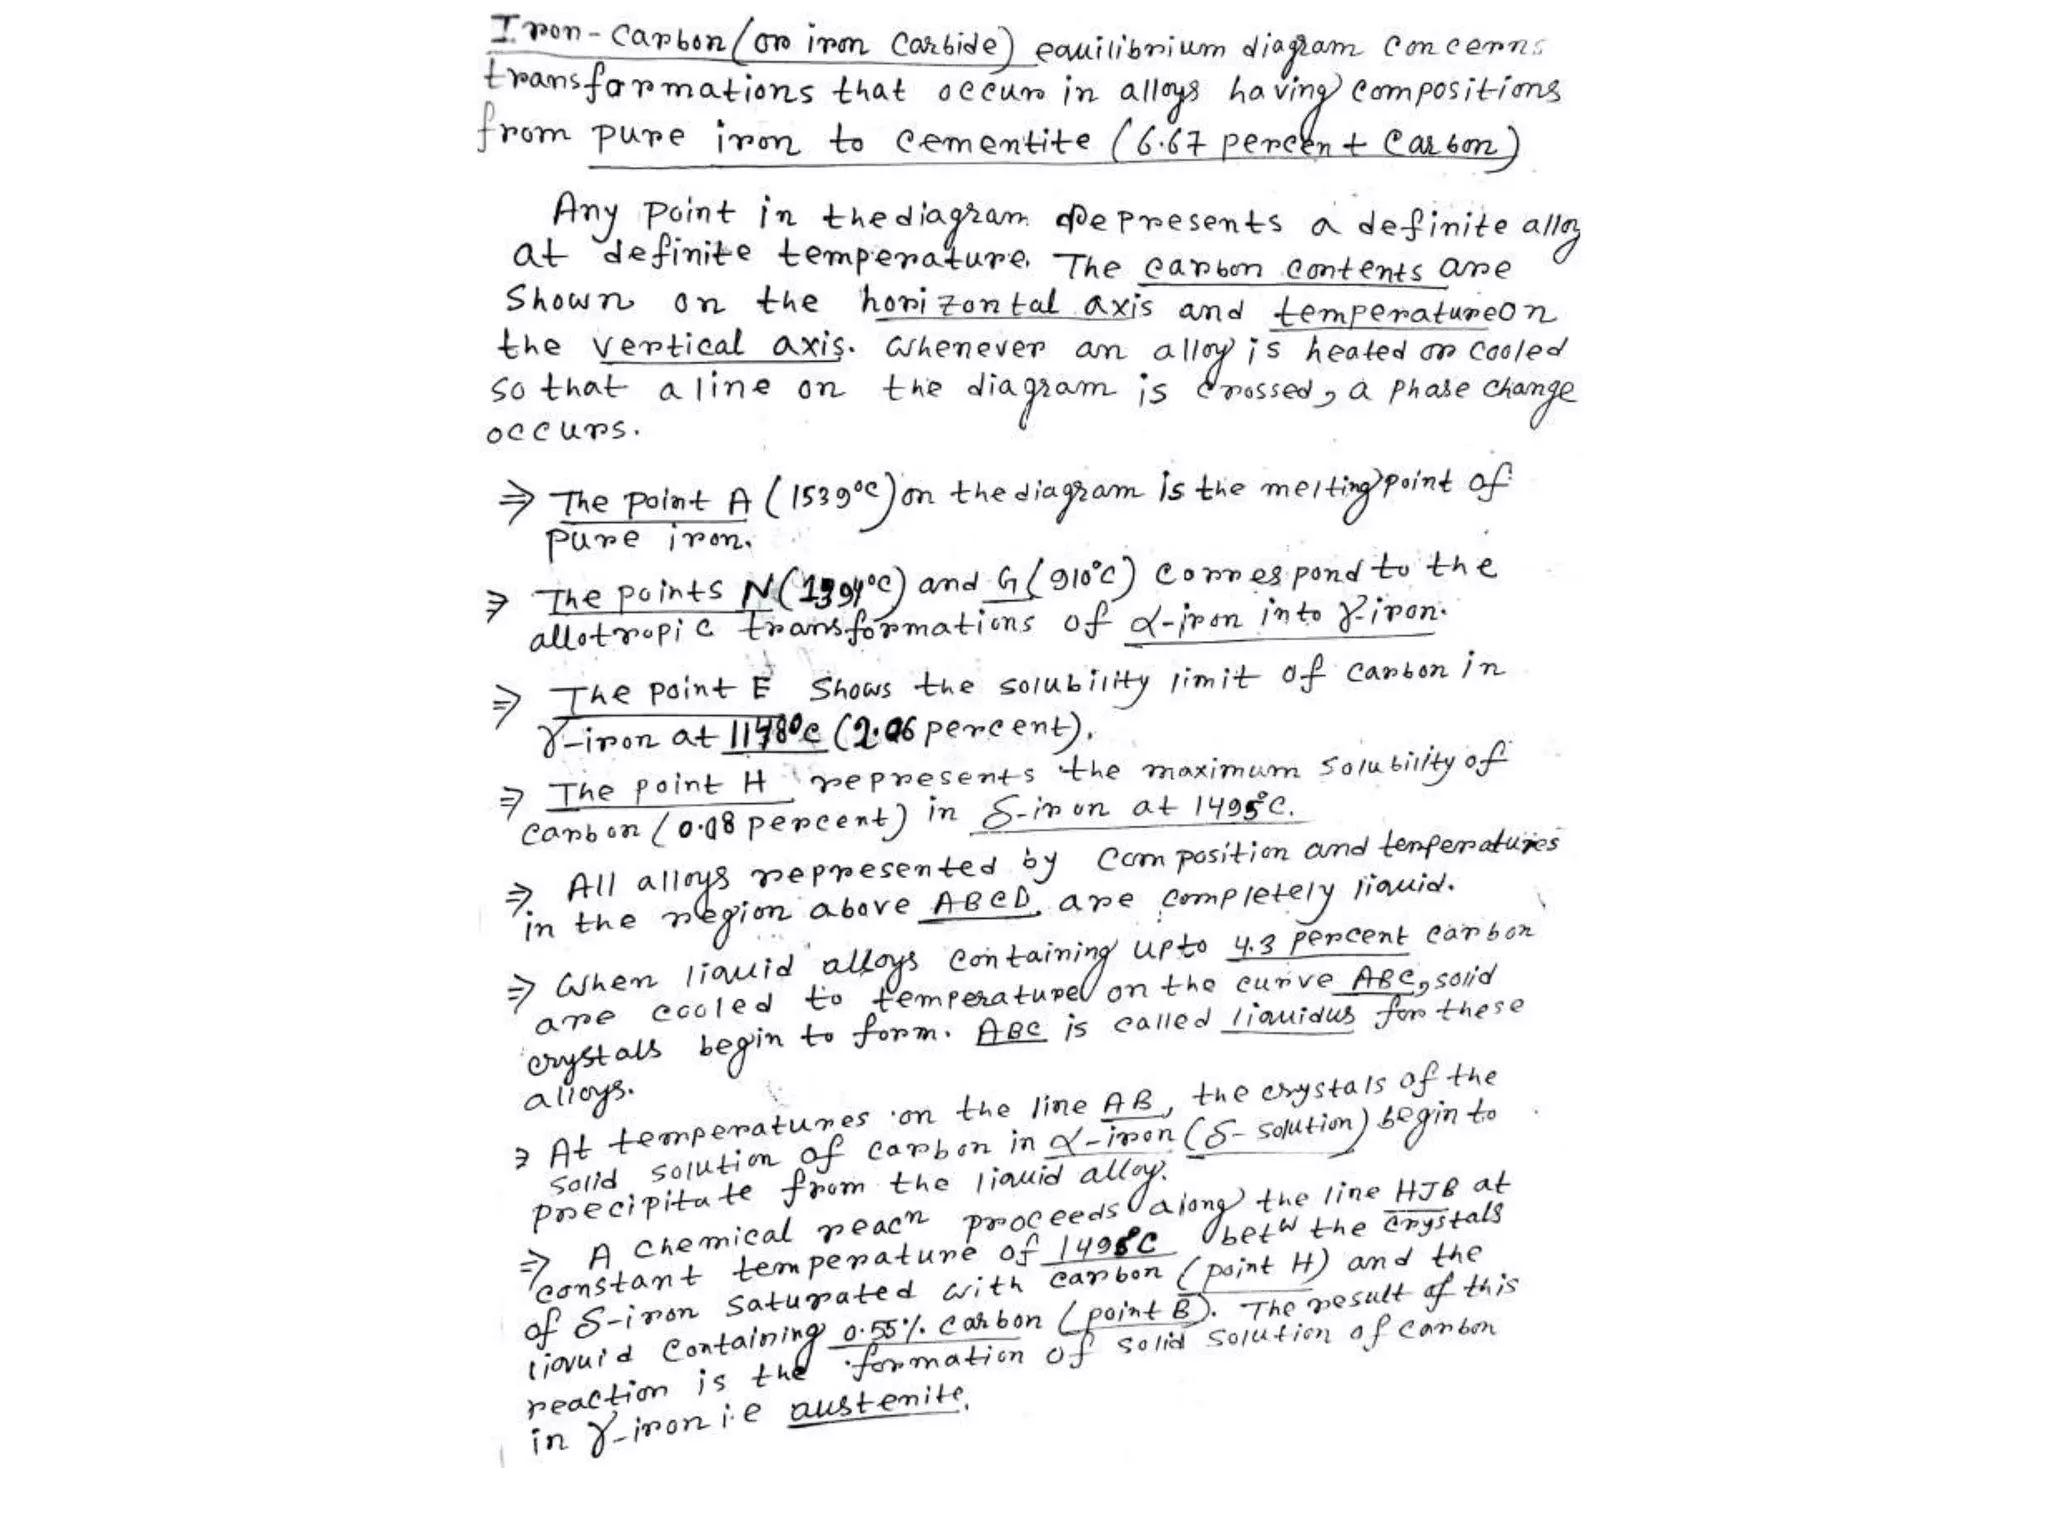 Iron-Carbon (or iron Carbide) equilibrium diagram concerns
transformations that occur in alloys having compositions
from pure iron to cementite (6.67 percent Carbon)
Any point in the diagram represents a definite alloy
at definite temperature. The carbon contents are
Shown on the horizontal axis and temperature on
the vertical axis. Whenever an alloy is heated or cooled
so that a line on the diagram is crossed, a phase change
occurs.
⇒ The point A (1539°C) on the diagram is the melting point of
pure iron.
⇒ The points N (1394°C) and G (910°C) correspond to the
allotropic transformations of α-iron into γ-iron.
⇒ The point E Shows the solubility limit of carbon in
γ-iron at 1148°C (2.06 percent).
⇒ The point H represents the maximum solubility of
carbon (0.08 percent) in δ-iron at 1495°C.
⇒ All alloys represented by Composition and temperatures
in the region above ABCD, are completely liquid.
⇒ When liquid alloys containing upto 4.3 percent carbon
are cooled to temperature on the curve ABC, solid
crystals begin to form. ABC is called liquidus for these
alloys.
⇒ At temperatures on the line AB, the crystals of the
solid solution of carbon in α-iron (δ-solution) begin to
precipitate from the liquid alloy.
⇒ A chemical reacn proceeds along the line HJB at
constant temperature of 1495°C betw the crystals
of δ-iron saturated with carbon (point H) and the
liquid containing 0.55% carbon (point B). The result of this
reaction is the formation of solid solution of carbon
in γ-iron i.e austenite.